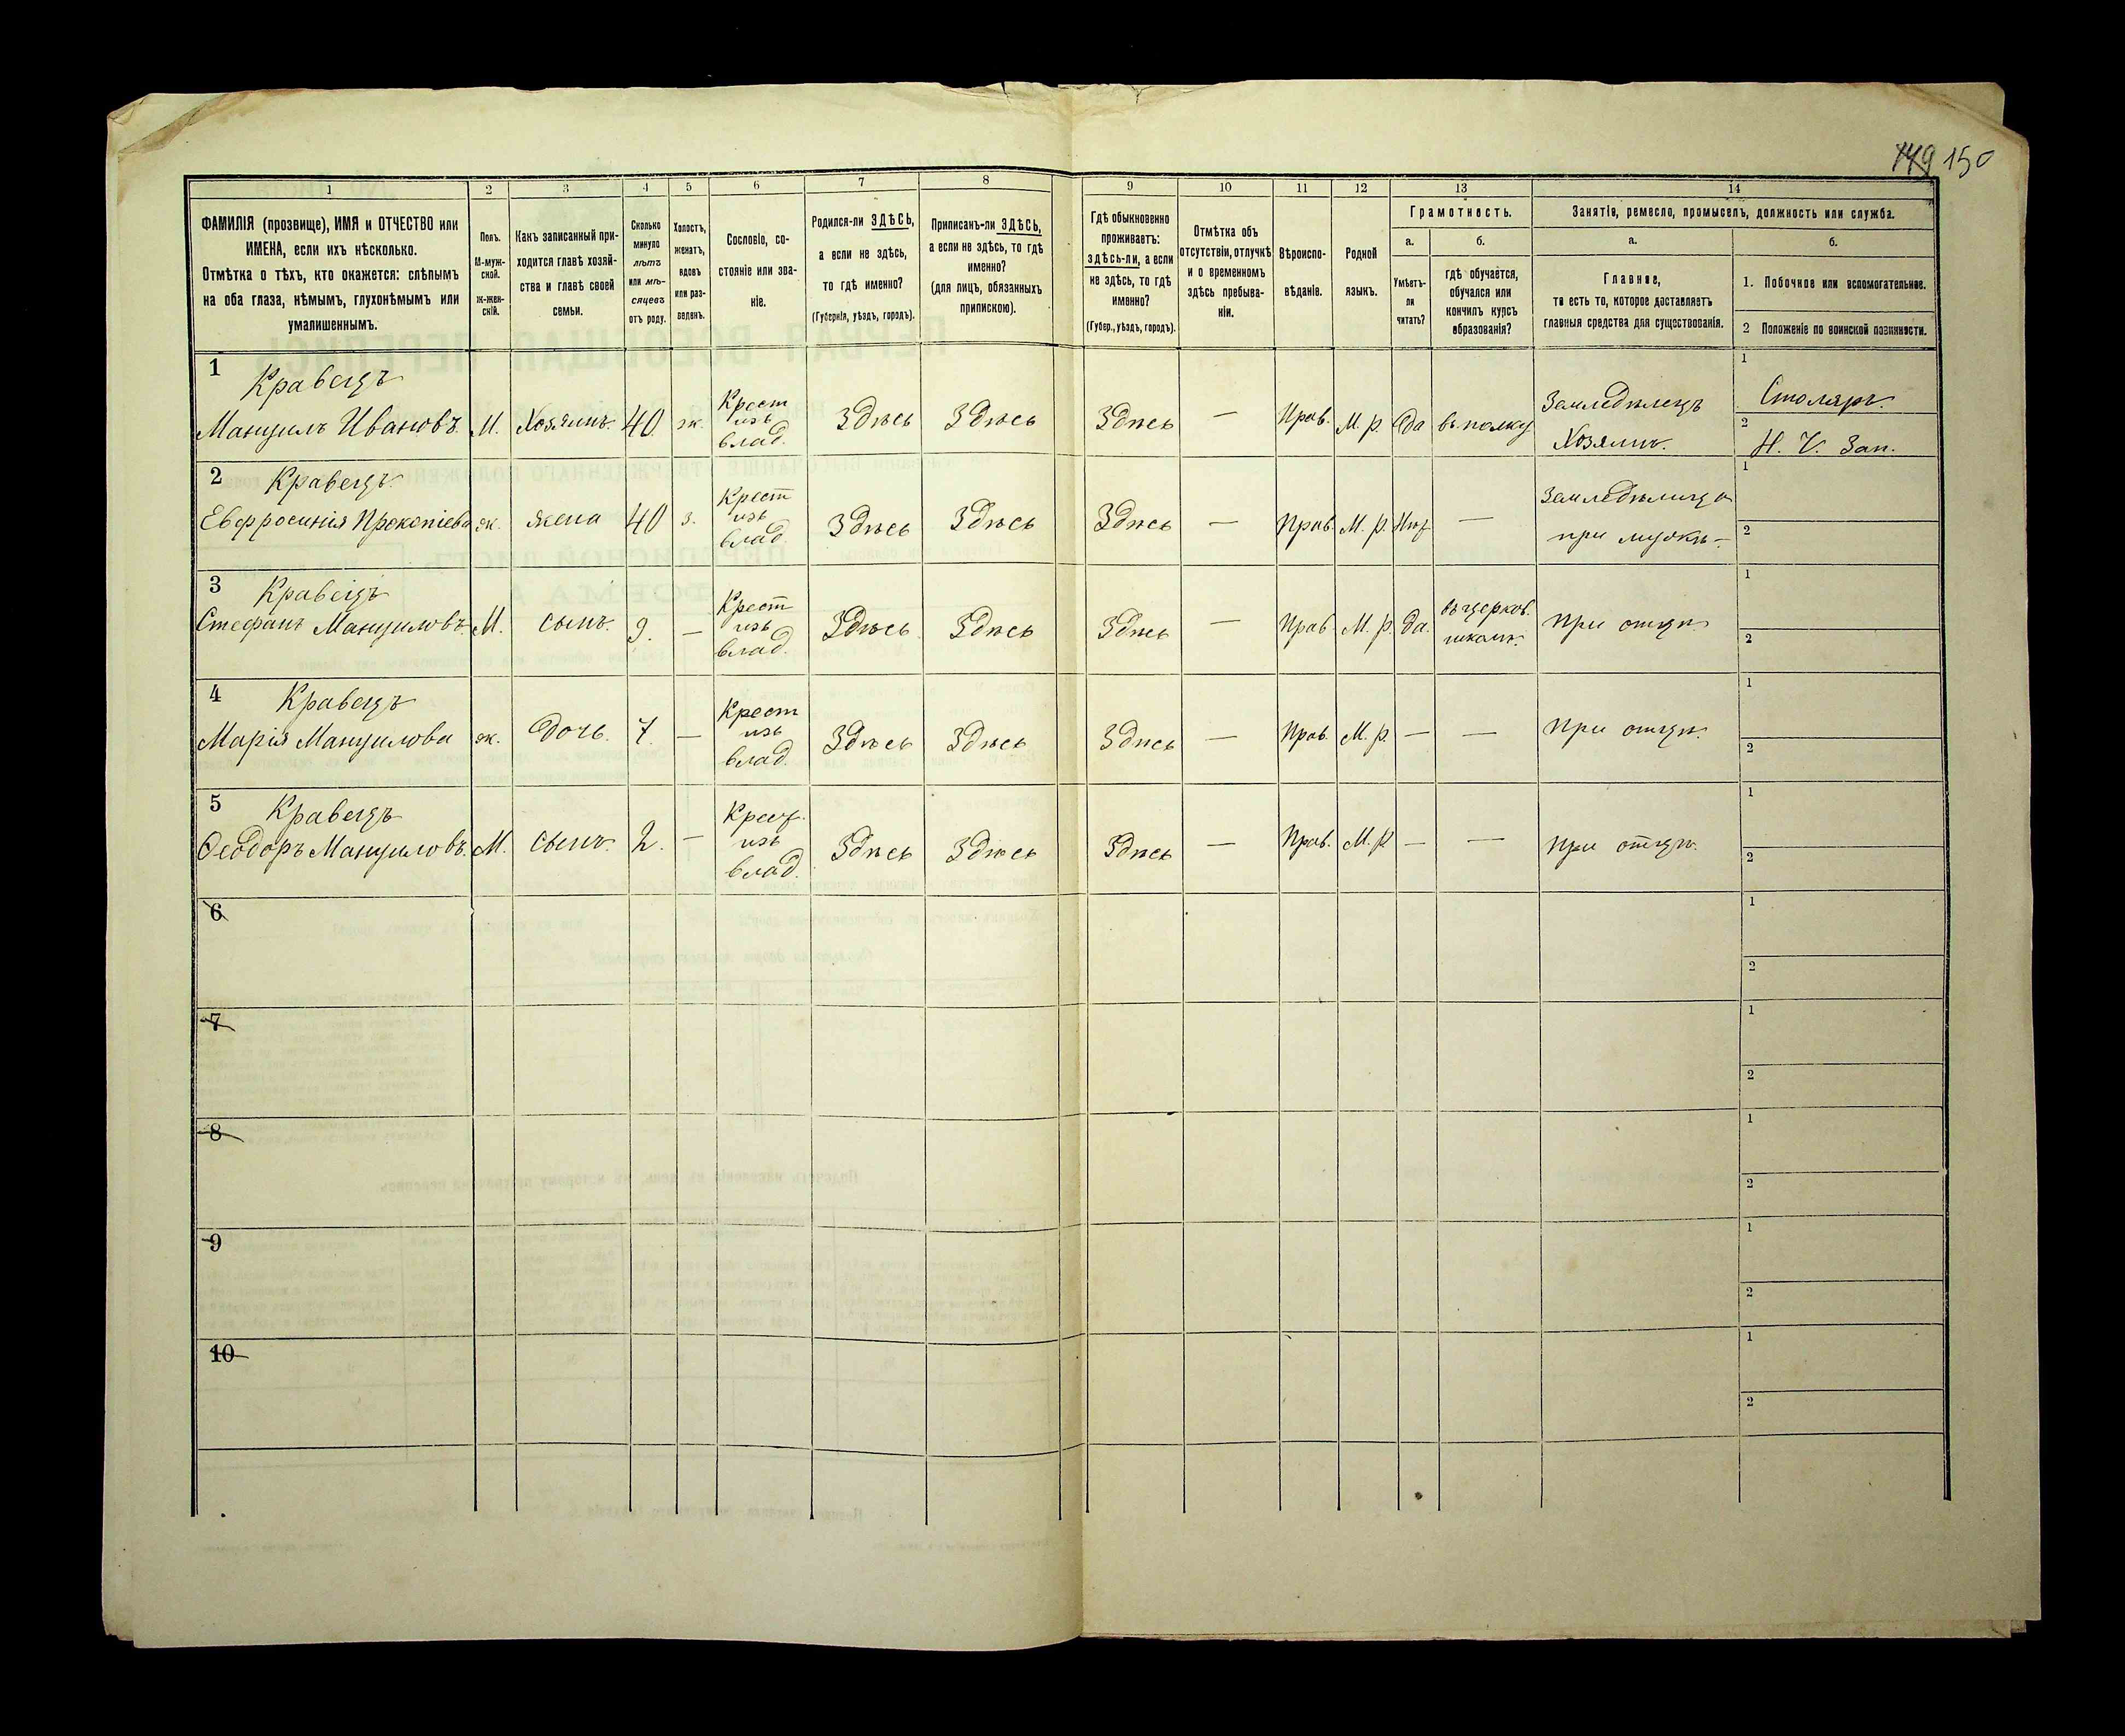 149 150
1 2 3 4 5 6 7 8 9 10 11 12 13 14
ФАМИЛІЯ (прозвище), ИМЯ и ОТЧЕСТВО или
ИМЕНА, если ихъ нѣсколько.
Отмѣтка о тѣхъ, кто окажется: слѣпымъ
на оба глаза, нѣмымъ, глухонѣмымъ или
умалишеннымъ.
Полъ.
М-муж-
ской.
Ж-жен-
скій.
Какъ записанный при-
ходится главѣ хозяй-
ства и главѣ своей
семьи.
Сколько
минуло
лѣтъ
или мѣ-
сяцевъ
отъ роду.
Холостъ,
женатъ,
вдовъ
или раз-
веденъ.
Сословіе, со-
стояніе или зва-
ніе.
Родился-ли ЗДѢСЬ,
а если не здѣсь,
то гдѣ именно?
(Губернія, уѣздъ, городъ).
Приписанъ-ли ЗДѢСЬ,
а если не здѣсь, то гдѣ
именно?
(для лицъ, обязанныхъ
припискою).
Гдѣ обыкновенно
проживаетъ:
здѣсь-ли, а если
не здѣсь, то гдѣ
именно?
(Губер., уѣздъ, городъ).
Отмѣтка объ
отсутствіи, отлучкѣ
и о временномъ
здѣсь пребыва-
ніи.
Вѣроиспо-
вѣданіе.
Родной
языкъ.
Грамотность.
а.
Умѣетъ-
ли
читать?
б.
гдѣ обучается,
обучался или
кончилъ курсъ
образованія?
Занятіе, ремесло, промыселъ, должность или служба.
а.
Главное,
то есть то, которое доставляетъ
главныя средства для существованія.
б.
1. Побочное или вспомогательное.
2 Положеніе по воинской повинности.
1 Кравецъ
Мануилъ Ивановъ. М. Хозяинъ. 40. ж. Крест изъ влад. Здѣсь Здѣсь Здѣсь — Прав. М. р. Да въ полку Земледѣлецъ Хозяинъ. 1 Столяръ. 2 Н. Ч. Зап.
2 Кравецъ
Евфросинія Прокопіева ж. жена 40 з. Крест изъ влад. Здѣсь Здѣсь Здѣсь — Прав. М. р. Нѣт — Земледѣлица при мужѣ. 1 2
3 Кравецъ
Стефанъ Мануиловъ. М. сынъ. 9. — Крест изъ влад. Здѣсь Здѣсь Здѣсь — Прав. М. р. да. въ церков. школѣ. При отцѣ 1 2
4 Кравецъ
Марія Мануилова ж. Дочь. 7. — Крест изъ влад. Здѣсь Здѣсь Здѣсь — Прав. М. р. — — При отцѣ. 1 2
5 Кравецъ
Ѳеодоръ Мануиловъ. М. сынъ. 2. — Крест. изъ влад. Здѣсь Здѣсь Здѣсь — Прав. М. р — — При отцѣ. 1 2
6 1 2
7 1 2
8 1 2
9 1 2
10 1 2